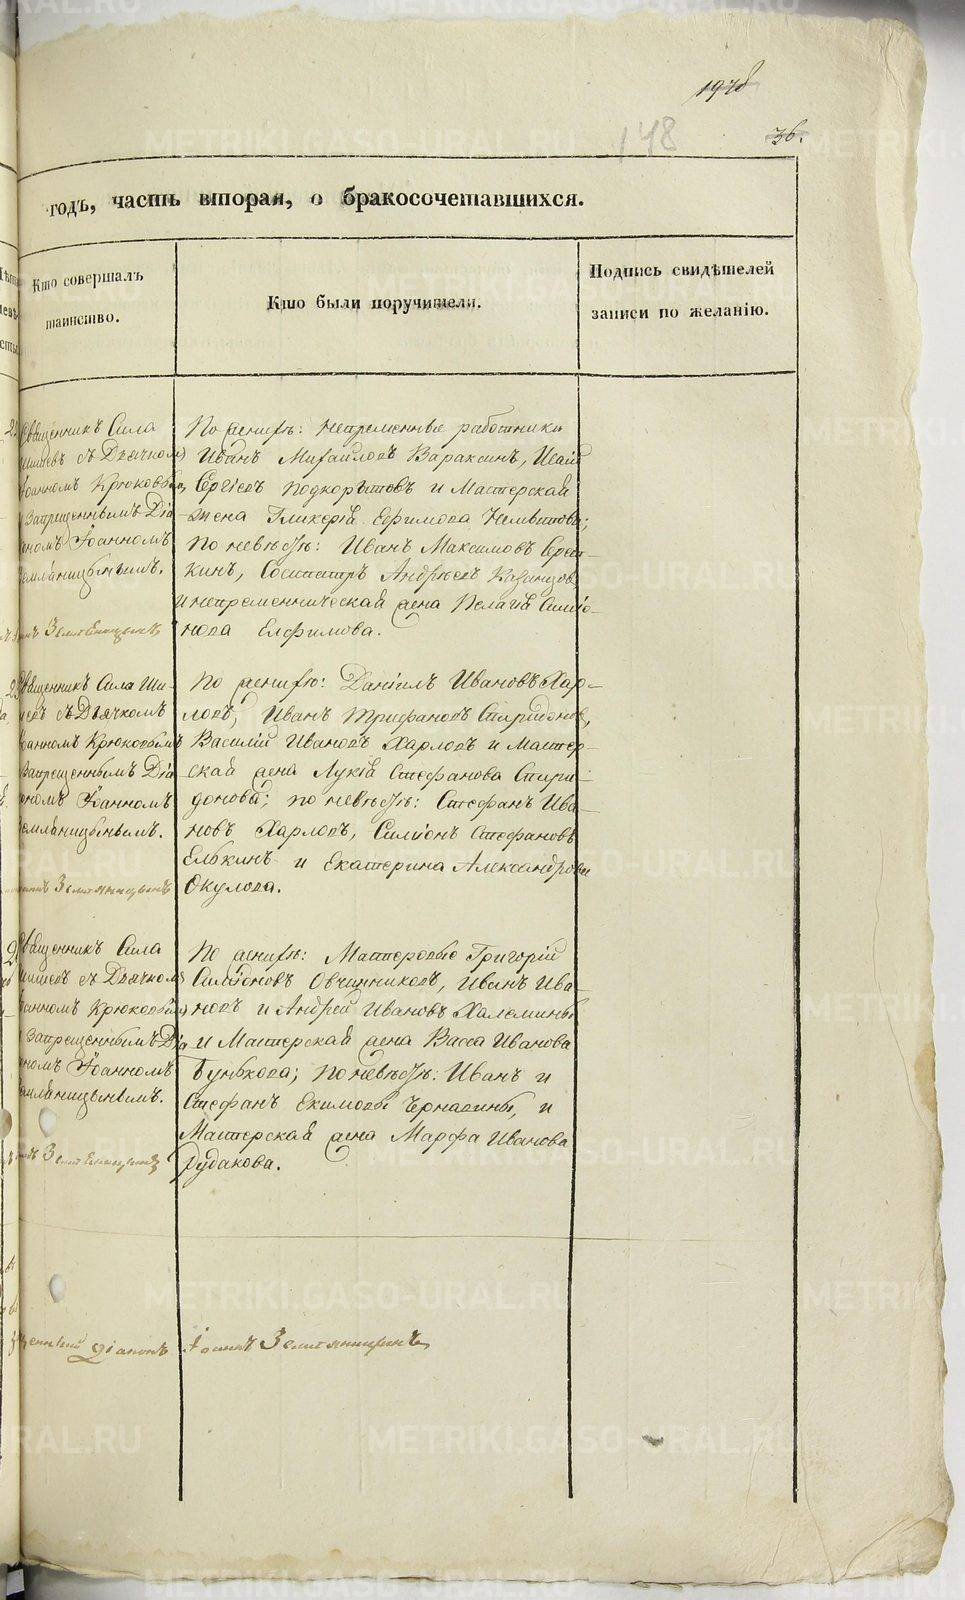 197
36.
148
годъ, часть вторая, о бракосочетавшихся.
Кто совершалъ
таинство.
Кто были поручители.
Подпись свидѣтелей
записи по желанію.
Священникъ Сила
Шишевъ съ Дьячкомъ
Іоанномъ Крюковымъ
и Запрещеннымъ Діа-
кономъ Іоанномъ
Земляницынымъ.
Земляницынъ
По женихѣ: Непременные работники
Иванъ Михайловъ Вараксинъ, Исай
Сергѣевъ Подкорытовъ и Мастерская
жена Гликерія Ефимова
по невѣстѣ: Иванъ Максимовъ
кинъ, Сосипатръ Андреевъ Казанцовъ
и непременническая жена Пелагія Симіо-
нова Елфимова.
Священникъ Сила Ши-
шевъ съ Дьячкомъ
Іоанномъ Крюковымъ
Запрещеннымъ Діа-
кономъ Іоанномъ
Земляницынымъ.
Земляницынъ
По женихѣ: Даніилъ Ивановъ Хар-
ловъ, Иванъ Трифановъ Спиридоновъ,
Василій Ивановъ Харловъ и Мастер-
ская жена Лукія Стефанова Спири-
донова; по невѣстѣ: Стефанъ Ива-
новъ Харловъ, Симіонъ Стефановъ
Елькинъ и Екатерина Александрова
Окулова.
Священникъ Сила
Шишевъ съ Дьячкомъ
Іоанномъ Крюковымъ
и Запрещеннымъ Діа
кономъ Іоанномъ
Земляницынымъ.
Земляницынъ
По женихѣ: Мастеровые Григорій
Симіоновъ Овчинниковъ, Иванъ Ива-
новъ и Андрей Ивановъ Халемины
и Мастерская жена Васса Иванова
Бунькова; по невѣстѣ: Иванъ и
Стефанъ Екимовы Чернавины, и
Мастерская жена Марфа Иванова
Рудакова.
діаконъ Іоаннъ Земляницынъ
METRIKI.GASO-URAL.RU